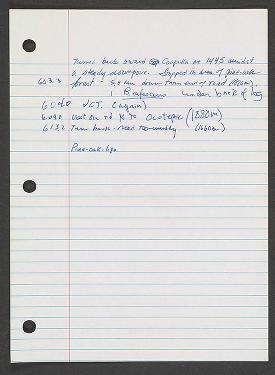 Turned back toward Coapilla at 1445 amidst
a steady downpour. Stopped in area of pine-oak
603.3 forest - 5.8 km down from end of road
1 B. rufescens under bark of log
6040 JCT. (again)
6090 West on rd N to Ocotepec (1880m)
6132 Turn back - road too muddy (1660m)
Pine-oak-liq.